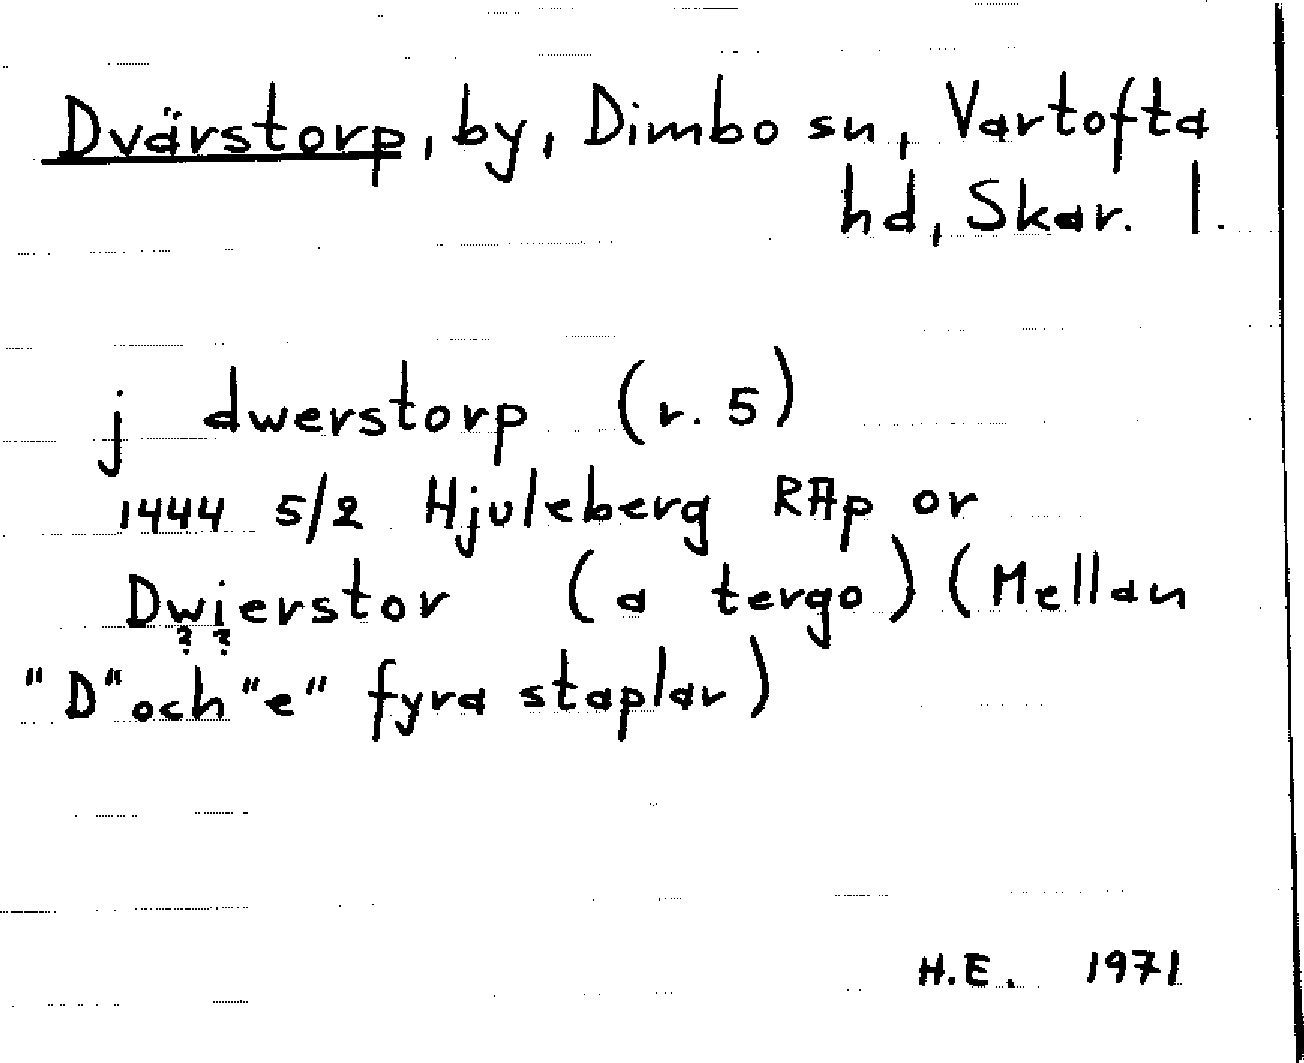 Dvärstorp, by, Dimbo sn, Vartofta
hd, Skar. l.
j dwerstorp (r. 5)
1444 5/2 Hjuleberg RAp or
Dwierstor (a tergo) (Mellan
? ?
"D" och "e" fyra staplar)
H.E. 1971